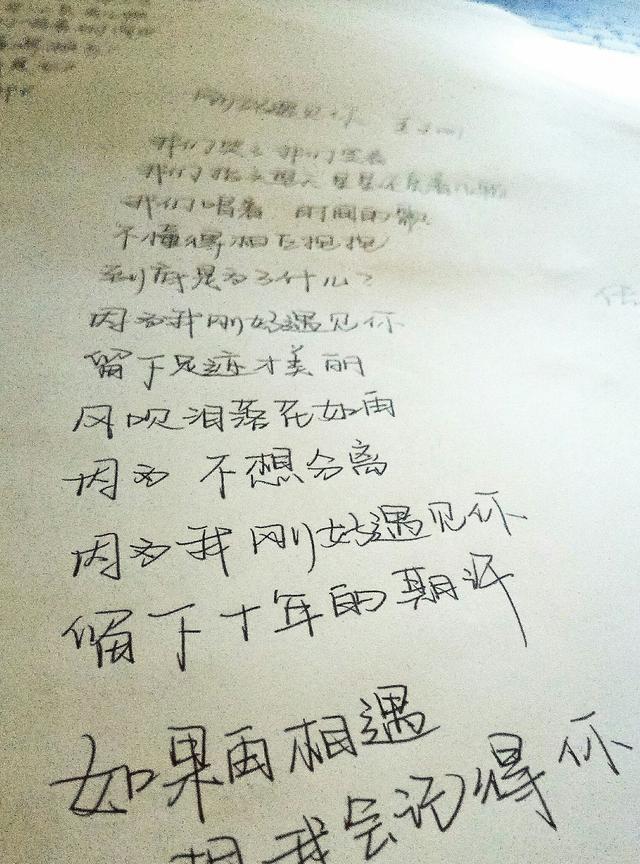 刚好遇见你
我们哭了 我们笑着
我们抬头望天 星星还亮着几颗
我们唱着 时间的歌
才懂得相互拥抱
到底是为了什么?
因为我刚好遇见你
留下足迹才美丽
风吹泪落花如雨
因为 不想分离
因为我刚好遇见你
留下十年的期许
如果再相遇
想我会记得你